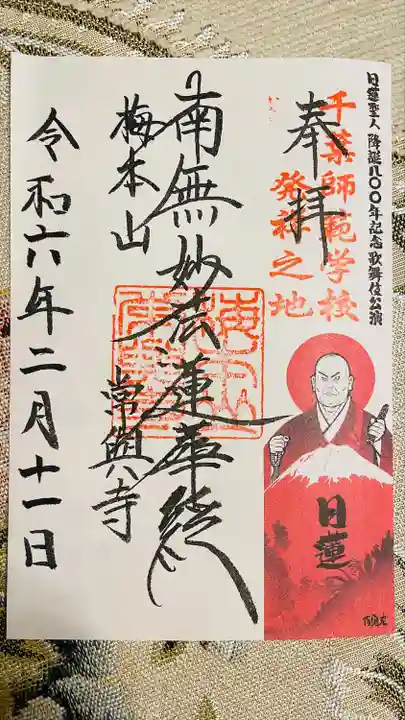 日蓮聖人 降誕八〇〇年記念歌舞伎公演
千葉師範学校
発祥之地
奉拝
日蓮
南無妙法蓮華経
梅本山
常興寺
令和六年二月十一日